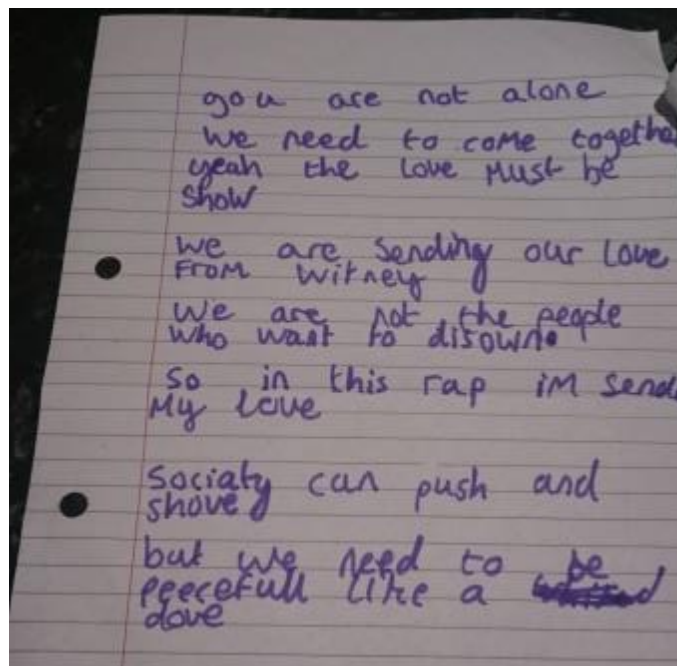 you are not alone
we need to come together
yeah the love must be
show
we are sending our love
from witney
we are not the people
who want to disown.
so in this rap im send
my love
sociaty can push and
shove
but we need to be
peecefull like a
dove